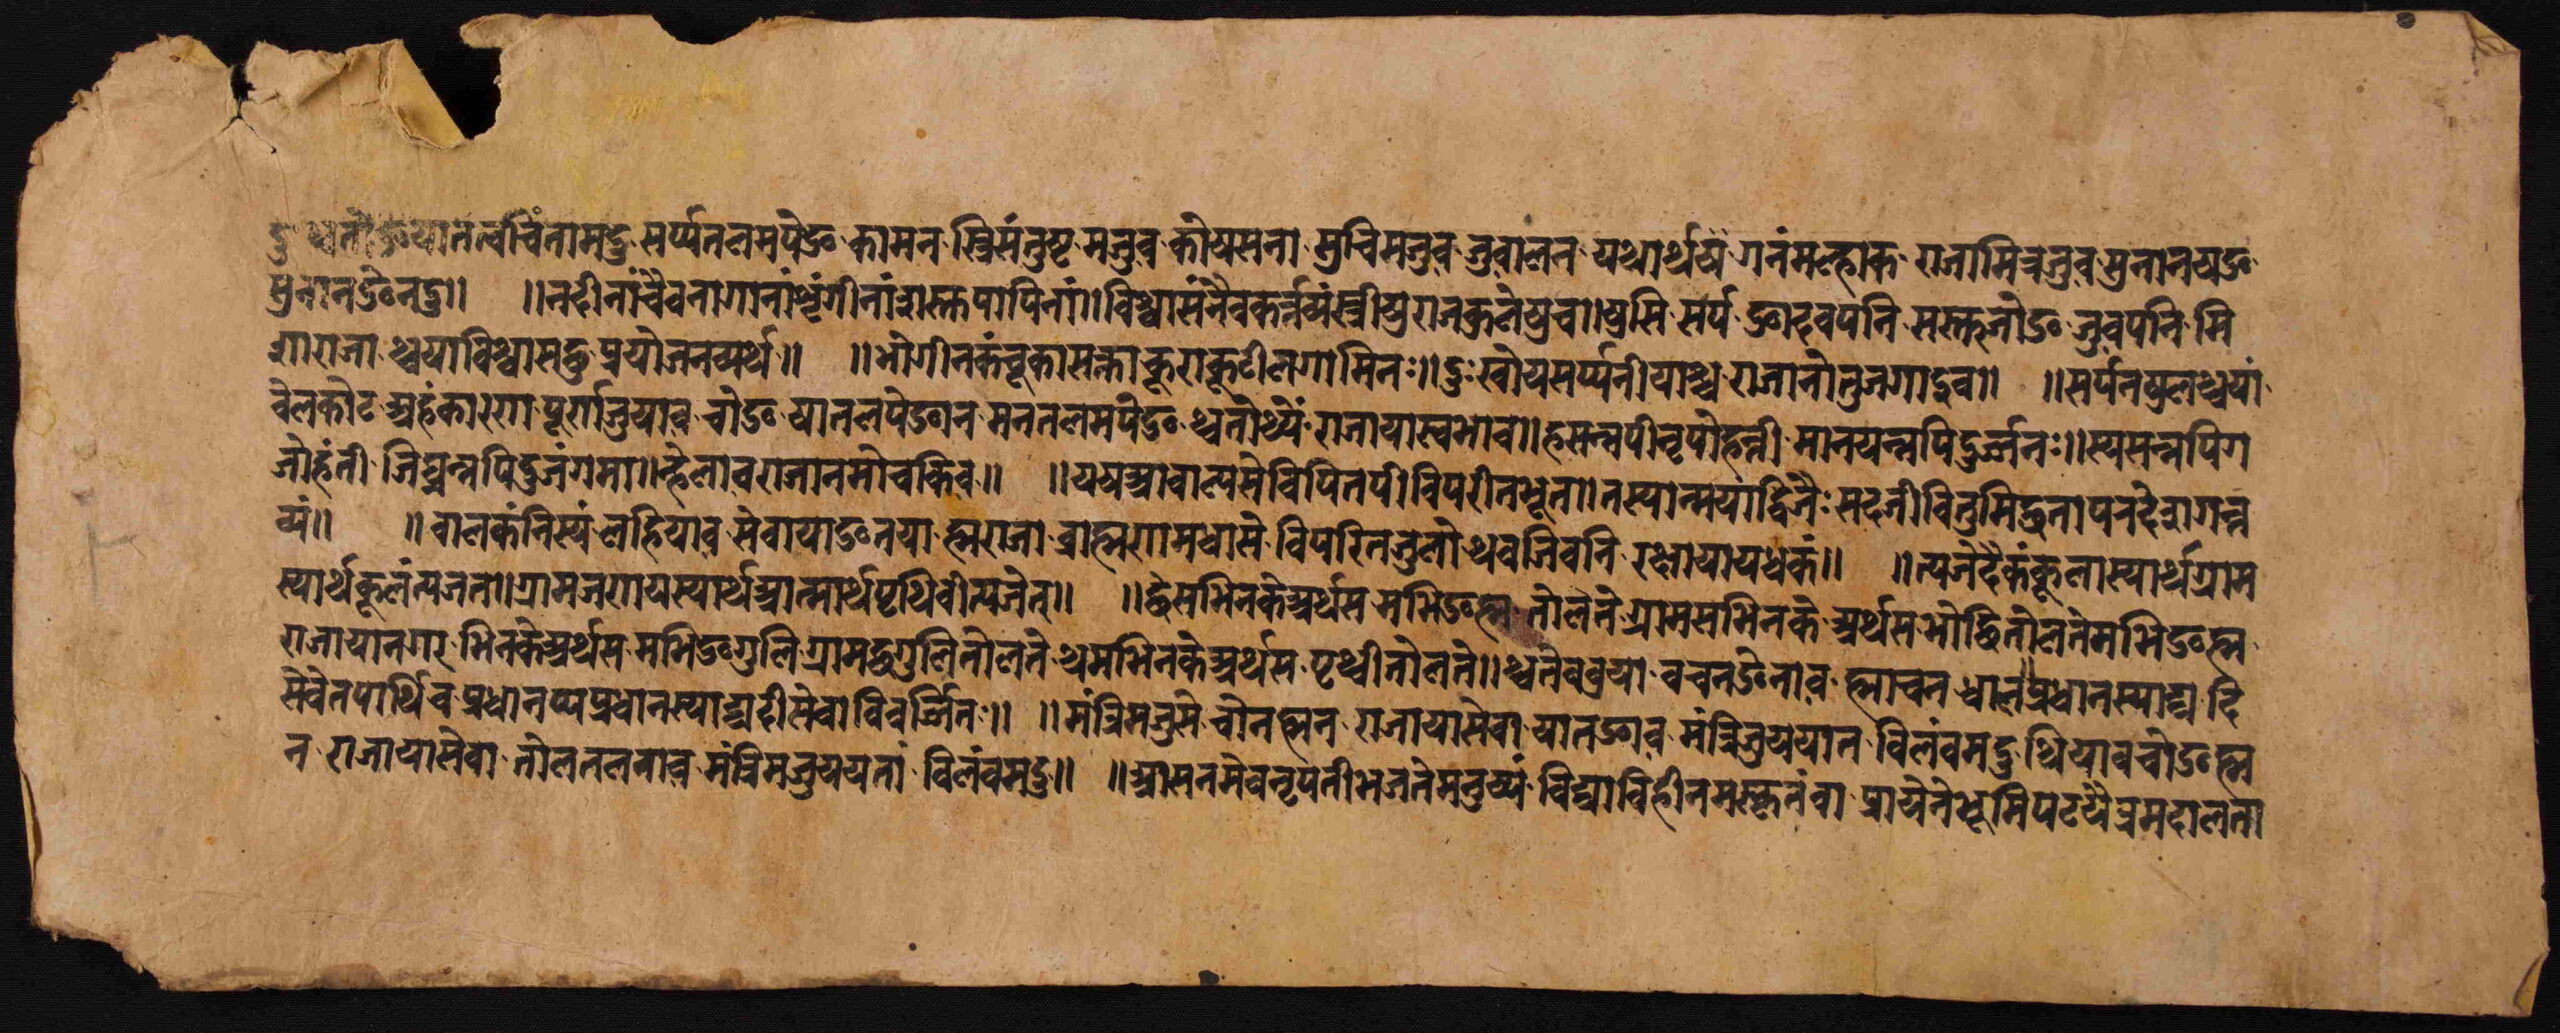 दु थ्वतोङयात तत्वचिंतामदु सर्प्पनलमपेङ कामन स्त्रिसंतुष्ट मजुव कोयसना मुचिमजुव जुवालन यथार्थ्यय गनंमल्हाक राजामित्रजुव मुनानयङ
मुनानङेनदु॥ ॥नदीनांचैवनागानांशृंगीनांशस्त्रपापिनां॥विश्वासंनैवकर्त्तव्यंस्त्रीयुराजकुलेयुच॥युसि सर्प ङादवपनि सस्त्रजोङ जुवपनि मि
शाराजा थ्वयाविश्वासछु प्रयोजनव्यर्थ॥ ॥भोगीनकंचूकासक्ताक्रूराकूटीलगामिनः॥दुःखोयसर्प्पनीयाश्च राजानोतुजगाइव॥ ॥सर्पनयुलथ्वयां
वेलकोट अहंकारशा पूर्शाजुयाव चोङ यानलपेङान मनतलमपेङ थ्वतोथ्यें राजायास्वभाव॥हसन्नपीनृपोहन्ती मानयन्नपिदुर्ज्जनः॥स्पसन्नपिग
जोहंती जिघ्रन्नपिदुजंगमा॥न्हेलावराजानमोचकिव॥ ॥यययावाल्पसेविपितपी विपरीतभूता॥तस्यान्मयाद्विजैः सदजीवितुमिछुता पनदेशगन्त
व्यं॥ ॥वालकंनिस्यं लहियाव सेवायाङनया ह्मराजा ब्राह्मशामधासे विपरितजुलो थवजिवनि रक्षायायधकं॥ ॥त्यजेदैकंकूलास्यार्थग्राम
स्यार्थकूलंत्यजत॥ग्रामजशायस्यार्थआत्मार्थपृथिवीत्यजेत्॥ ॥छेसभिनकेअर्थस मभिङह्म तोलते ग्रामसभिनके अर्थस भोछितोलतेमभिङह्म
राजायानगर भिनकेअर्थस मभिङगुलि ग्रामछगुलितोलते थमभिनकेअर्थस पृथ्वीतोलते॥थ्वतेवव्रया वचनङेनाव ह्माचन धाल॥प्रधानस्याद्य दि
सेवेतपार्थिव प्रधानप्यप्रधानस्याद्यदीसेवाविवर्ज्जितः॥ ॥मंत्रिमजुसे चोनह्मन राजायासेवा यातङाव मंत्रिजुययात विलंवमदु थियावचोङह्म
न राजायासेवा तोलतलनाव मंत्रिमजुययतां विलंवमदु॥ ॥आसनमेवनृपतीभजतेमनुष्यं विद्याविहीनमस्कृतंवा प्रायेनेभूमिपटयैत्रमदालता